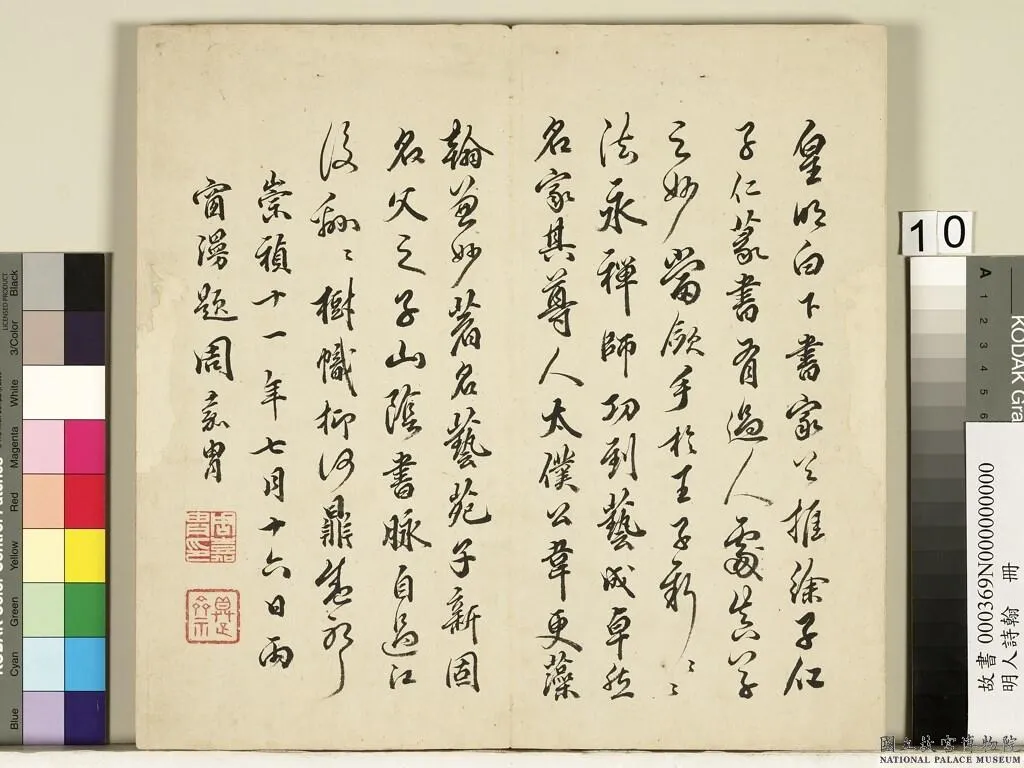 皇明白下書家推徐子仁
子仁篆書有過人處真草
之妙當歛手於王子新〻〻
法永禪師功到藝成卓然
名家其尊人太僕公韋更藻
翰兼妙著名藝苑子新固
名父之子山陰書脉自過江
後翩〻樹幟抑何鼎盛耶
崇禎十一年七月十六日雨
窗漫題周嘉胄
周嘉胄印
10
Black
3/Color
White
Magenta
Red
Yellow
Green
Cyan
Blue
LICENSED PRODUCT
A 1 2 3 4 5 6
KODAK Gra
故書 000369N000000000
明人詩翰 冊
國立故宮博物院
NATIONAL PALACE MUSEUM